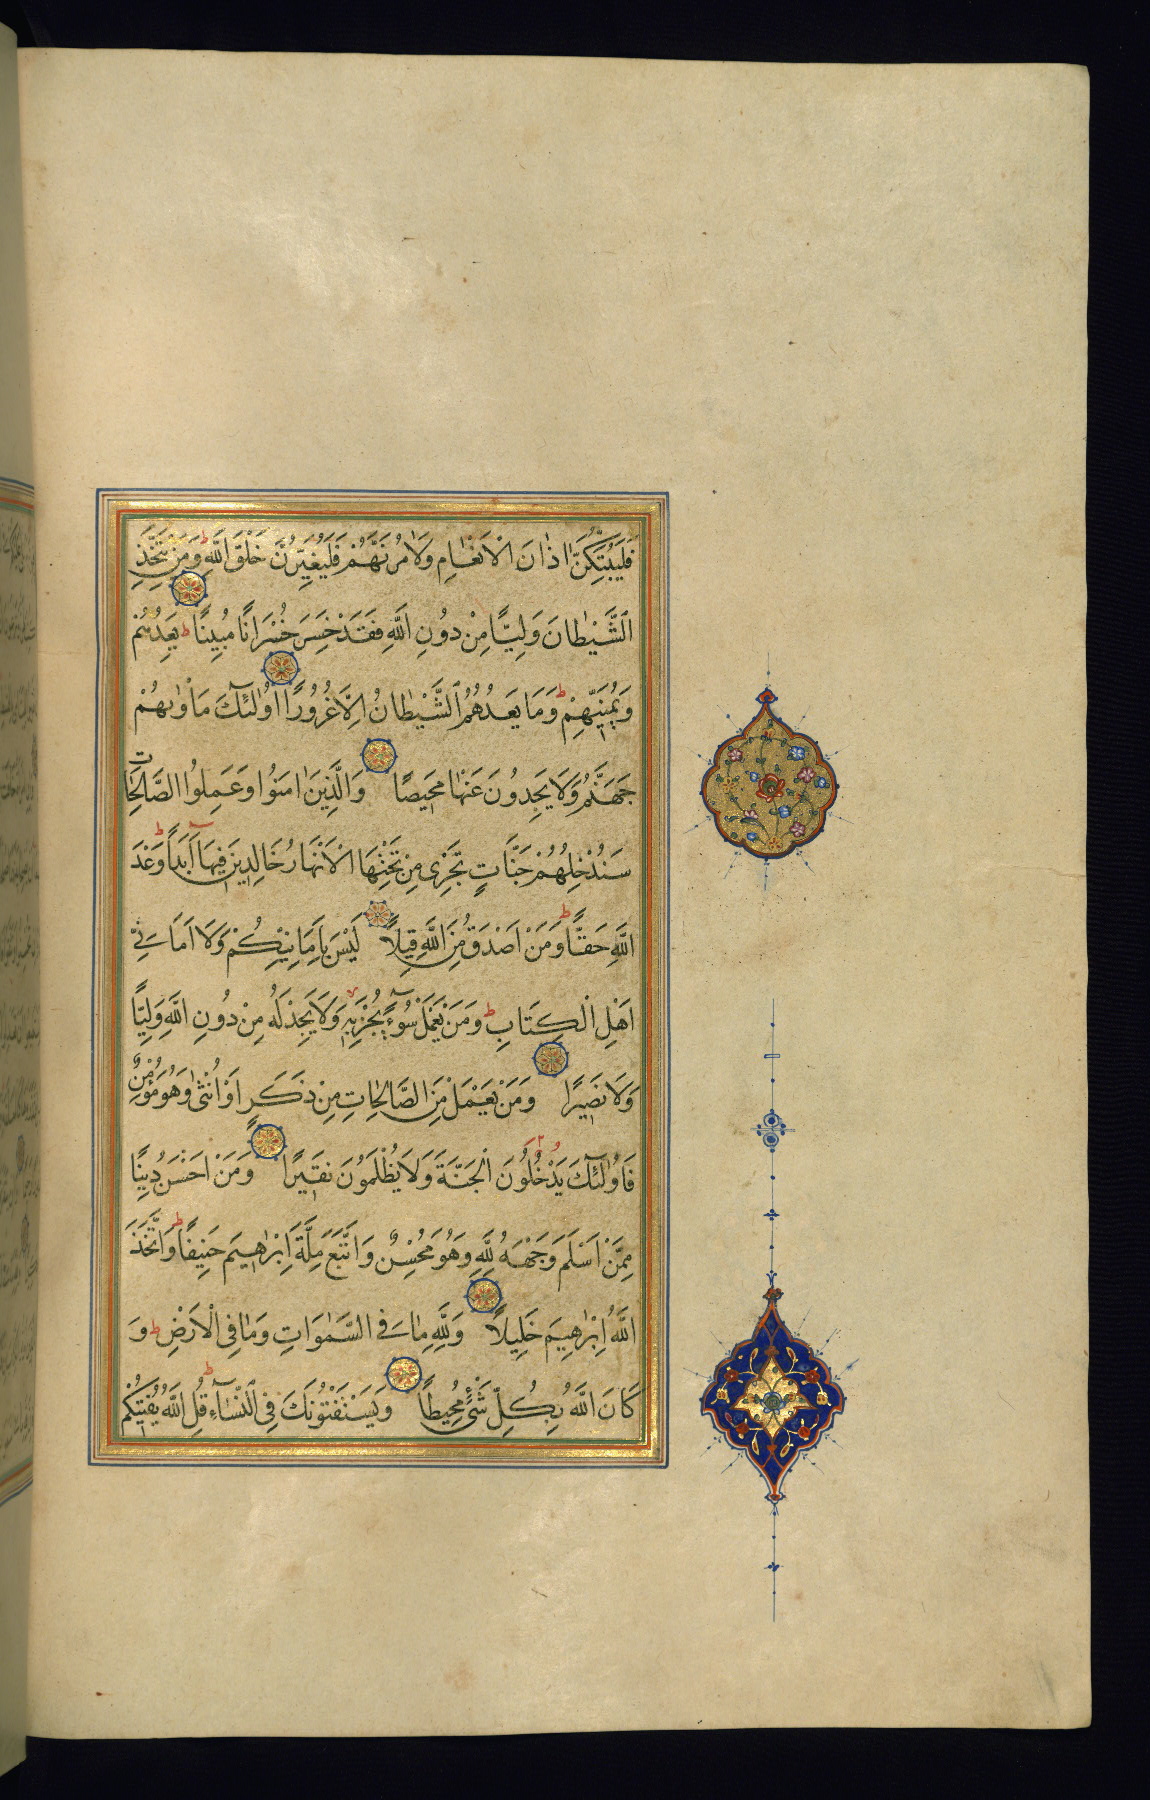 فَلَيُبَتِّكُنَّ اٰذَانَ الْاَنْعَامِ وَلَاٰمُرَنَّهُمْ فَلَيُغَيِّرُنَّ خَلْقَ اللّٰهِ ط وَمَنْ يَتَّخِذِ
الشَّيْطَانَ وَلِيًّا مِنْ دُونِ اللّٰهِ فَقَدْ خَسِرَ خُسْرَانًا مُبِينًا ط يَعِدُهُمْ
وَيُمَنِّيهِمْ ط وَمَا يَعِدُهُمُ الشَّيْطَانُ اِلَّا غُرُورًا اُولٰئِكَ مَاْوٰيهُمْ
جَهَنَّمُ وَلَا يَجِدُونَ عَنْهَا مَحِيصًا وَالَّذِينَ اٰمَنُوا وَعَمِلُوا الصَّالِحَاتِ
سَنُدْخِلُهُمْ جَنَّاتٍ تَجْرِى مِنْ تَحْتِهَا الْاَنْهَارُ خَالِدِينَ فِيهَا اَبَدًا ط وَعْدَ
اللّٰهِ حَقًّا ط وَمَنْ اَصْدَقُ مِنَ اللّٰهِ قِيلًا لَيْسَ بِاَمَانِيِّكُمْ وَلَا اَمَانِىِّ
اَهْلِ الْكِتَابِ ط وَمَنْ يَعْمَلْ سُوءًا يُجْزَ بِهِ لا وَلَا يَجِدْ لَهُ مِنْ دُونِ اللّٰهِ وَلِيًّا
وَلَا نَصِيرًا وَمَنْ يَعْمَلْ مِنَ الصَّالِحَاتِ مِنْ ذَكَرٍ اَوْ اُنْثٰى وَهُوَ مُؤْمِنٌ
فَاُولٰئِكَ يَدْخُلُونَ الْجَنَّةَ وَلَا يُظْلَمُونَ نَقِيرًا وَمَنْ اَحْسَنُ دِينًا
مِمَّنْ اَسْلَمَ وَجْهَهُ لِلّٰهِ وَهُوَ مُحْسِنٌ وَاتَّبَعَ مِلَّةَ اِبْرٰهِيمَ حَنِيفًا ط وَاتَّخَذَ
اللّٰهُ اِبْرٰهِيمَ خَلِيلًا وَلِلّٰهِ مَا فِى السَّمٰوَاتِ وَمَا فِى الْاَرْضِ ط وَ
كَانَ اللّٰهُ بِكُلِّ شَىْءٍ مُحِيطًا وَيَسْتَفْتُونَكَ فِى النِّسَاءِ ط قُلِ اللّٰهُ يُفْتِيكُمْ